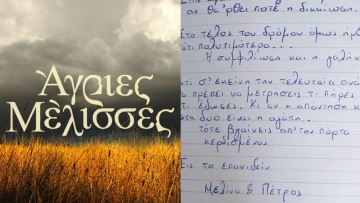 Άγριες
Μὲλισσες
αν θα 'ρθει ποτέ η δικαίωση
Στο τέλος του δρόμου όμως
πολυτιμότερο...
Η συμφιλίωση και η γαλήν
εκείνη την τελευταία ανά
πρέπει να μετρήσεις τι πήρες
τι έδωσες. Κι αν η απάντηση κ
στα δυο είναι η αγάπη...
Τότε βγαίνεις απ' την πόρτα
κερδισμένος.
Εις το επανιδείν
Μελίνα & Πέτρος